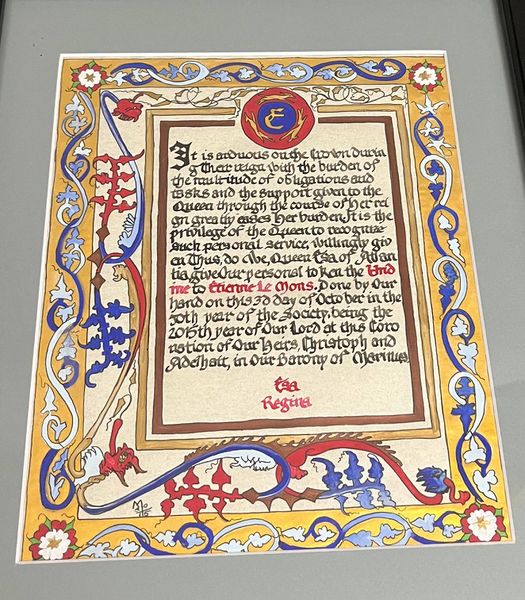 E
It is arduous on the Crown durin
g Their reign with the burden of
the multitude of obligations and
tasks and the support given to the
Queen through the course of Her rei
gn greatly eases Her burden. It is the
privilege of the Queen to recognize
such personal service, willingly giv
en. Thus, do We, Queen Ysa of Atlan
tia give Our personal token the Und
ine to Etienne Le Mons. Done by Our
hand on this 3d day of October in the
50th year of the Society, being the
2015th year of Our Lord at this Coro
nation of Our Heirs, Christoph and
Adelhait, in Our Barony of Marinus.
Ysa
Regina